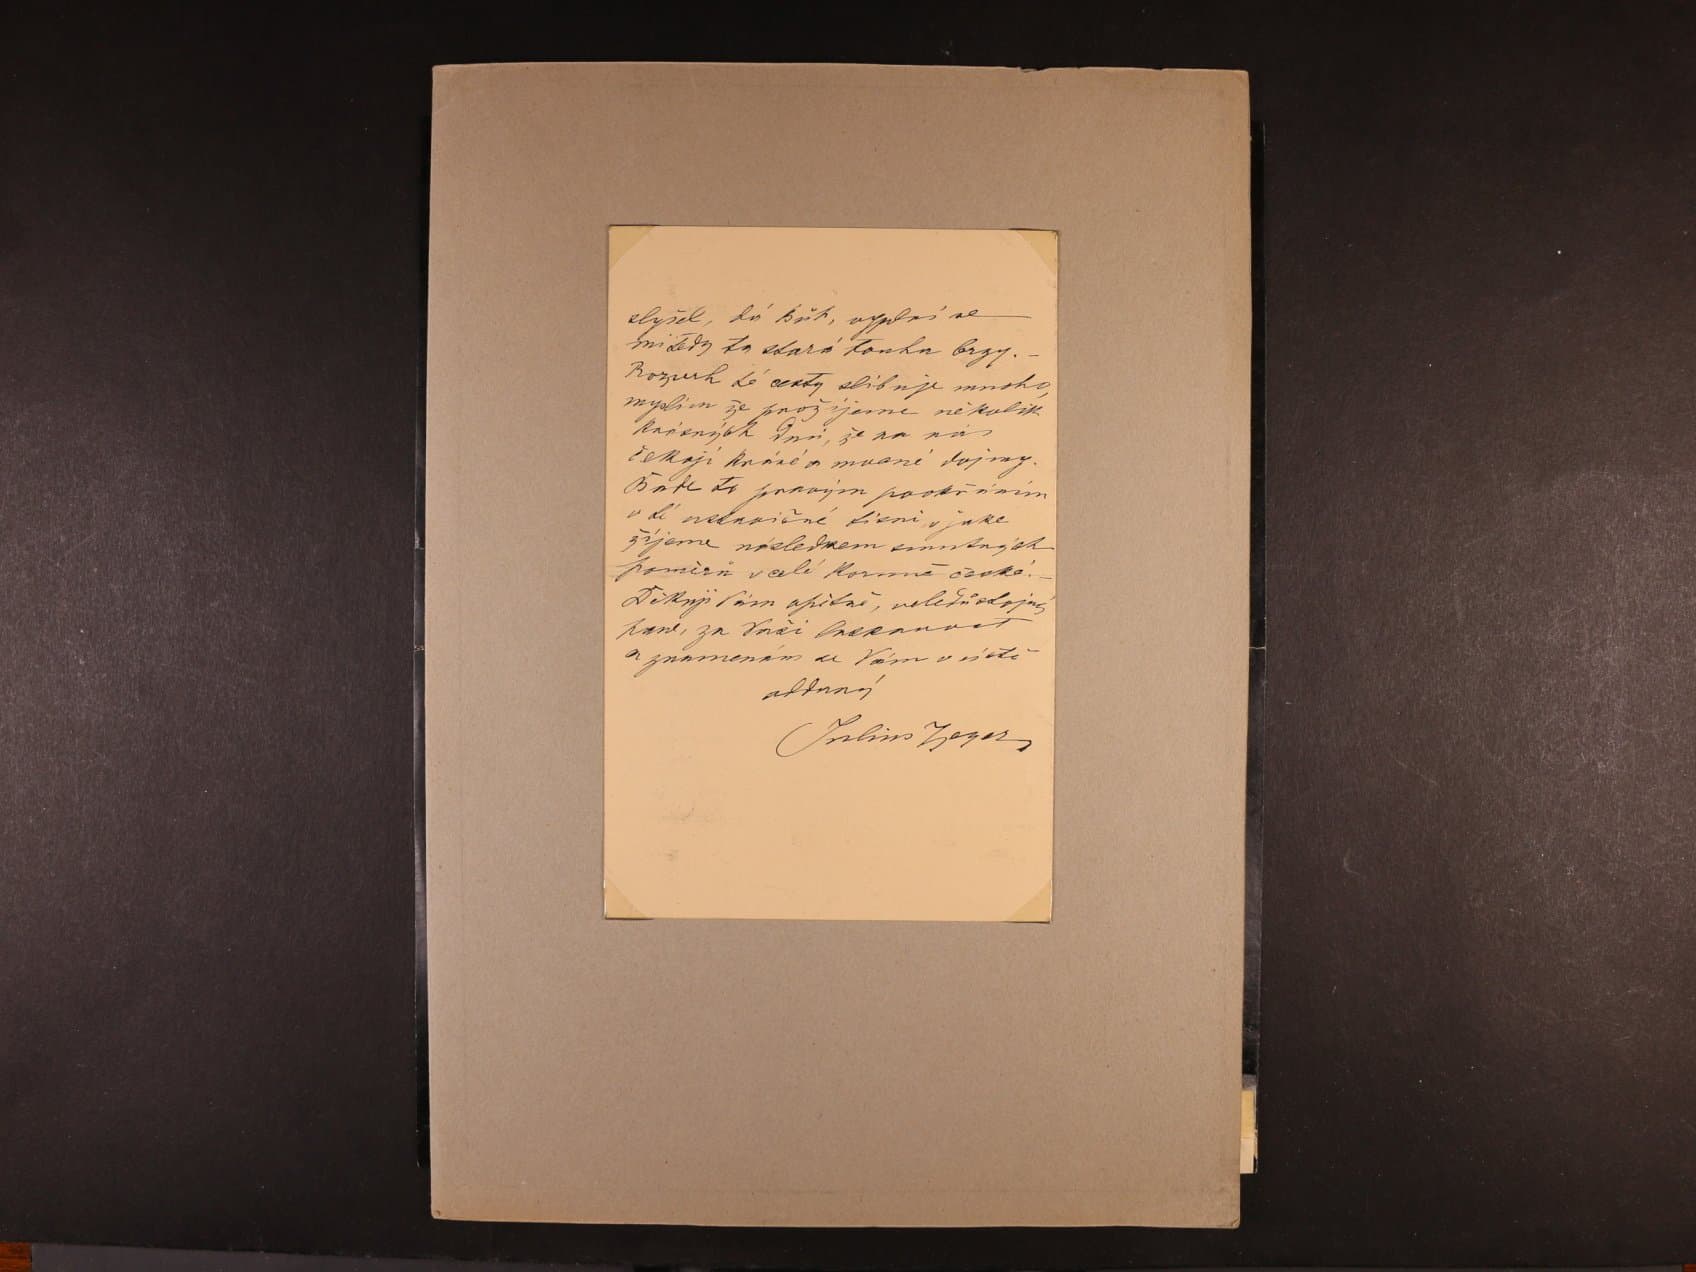 slyšel, dá Bůh, vyplní se
mi tedy ta stará touha brzy. —
Rozvrh té cesty slibuje mnoho,
myslím že prožijeme několik
krásných dnů, že na nás
čekají krásné a mocné dojmy.
Bude to pravým pookřáním
v té ustavičné tísni, v jaké
žijeme následkem smutných
poměrů v celé Koruně české. —
Děkuji Vám opětně, veledůstojný
pane, za Vaši laskavost
a znamenám se Vám v úctě
oddaný
Julius Zeyer